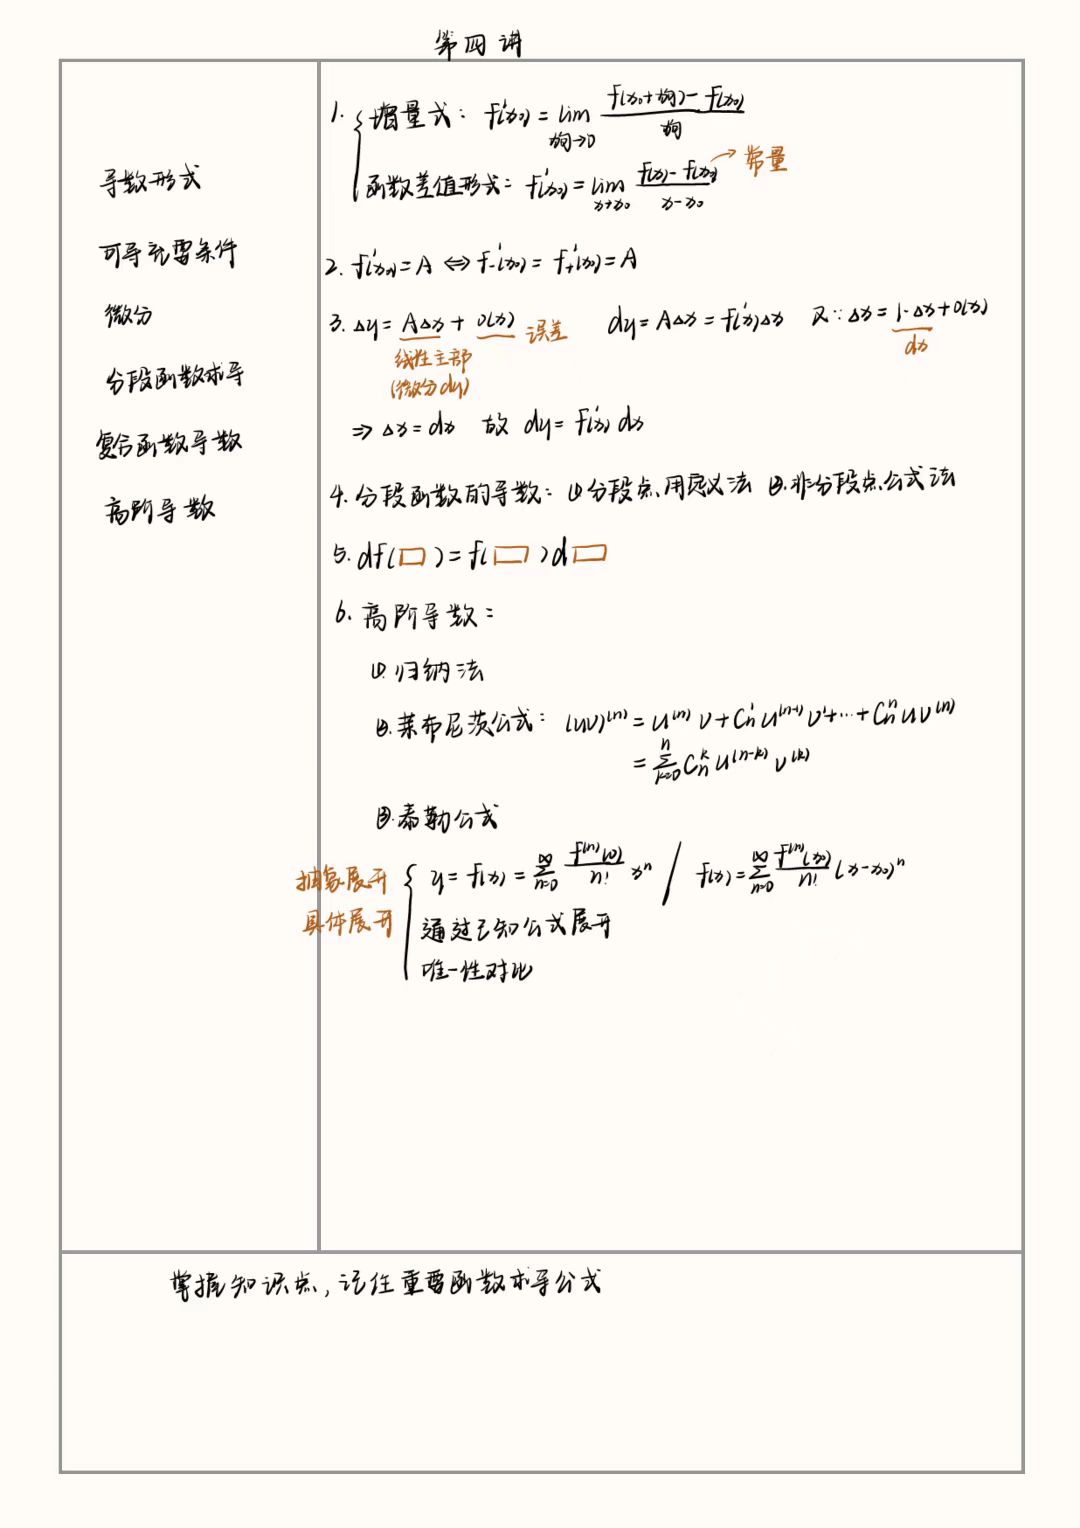 第四讲
导数形式
可导充要条件
微分
分段函数求导
复合函数导数
高阶导数
1. { 增量式: f'(x₀) = lim_{狗→0} [f(x₀+狗) - f(x₀)] / 狗
函数差值形式: f'(x₀) = lim_{x→x₀} [f(x) - f(x₀)] / (x - x₀) → 常量
2. f'(x₀) = A ⇔ f₋'(x₀) = f₊'(x₀) = A
3. Δy = AΔx + o(x) 误差 dy = AΔx = f'(x)Δx 又∵Δx = 1·Δx + o(x)
线性主部 dx
(微分dy)
⇒ Δx = dx 故 dy = f'(x) dx
4. 分段函数的导数: ①分段点用定义法 ②.非分段点公式法
5. df(□) = f(□)d□
6. 高阶导数:
①. 归纳法
②. 莱布尼茨公式: (uv)^(n) = u^(n) v + C_n^1 u^(n-1) v' + ··· + C_n^n u v^(n)
= Σ_{k=0}^{n} C_n^k u^(n-k) v^(k)
③.泰勒公式
抽象展开 { y = f(x) = Σ_{n=0}^{∞} f^(n)(0)/n! x^n / f(x) = Σ_{n=0}^{∞} f^(n)(x₀)/n! (x-x₀)^n
具体展开 通过已知公式展开
唯一性对比
掌握知识点, 记住重要函数求导公式